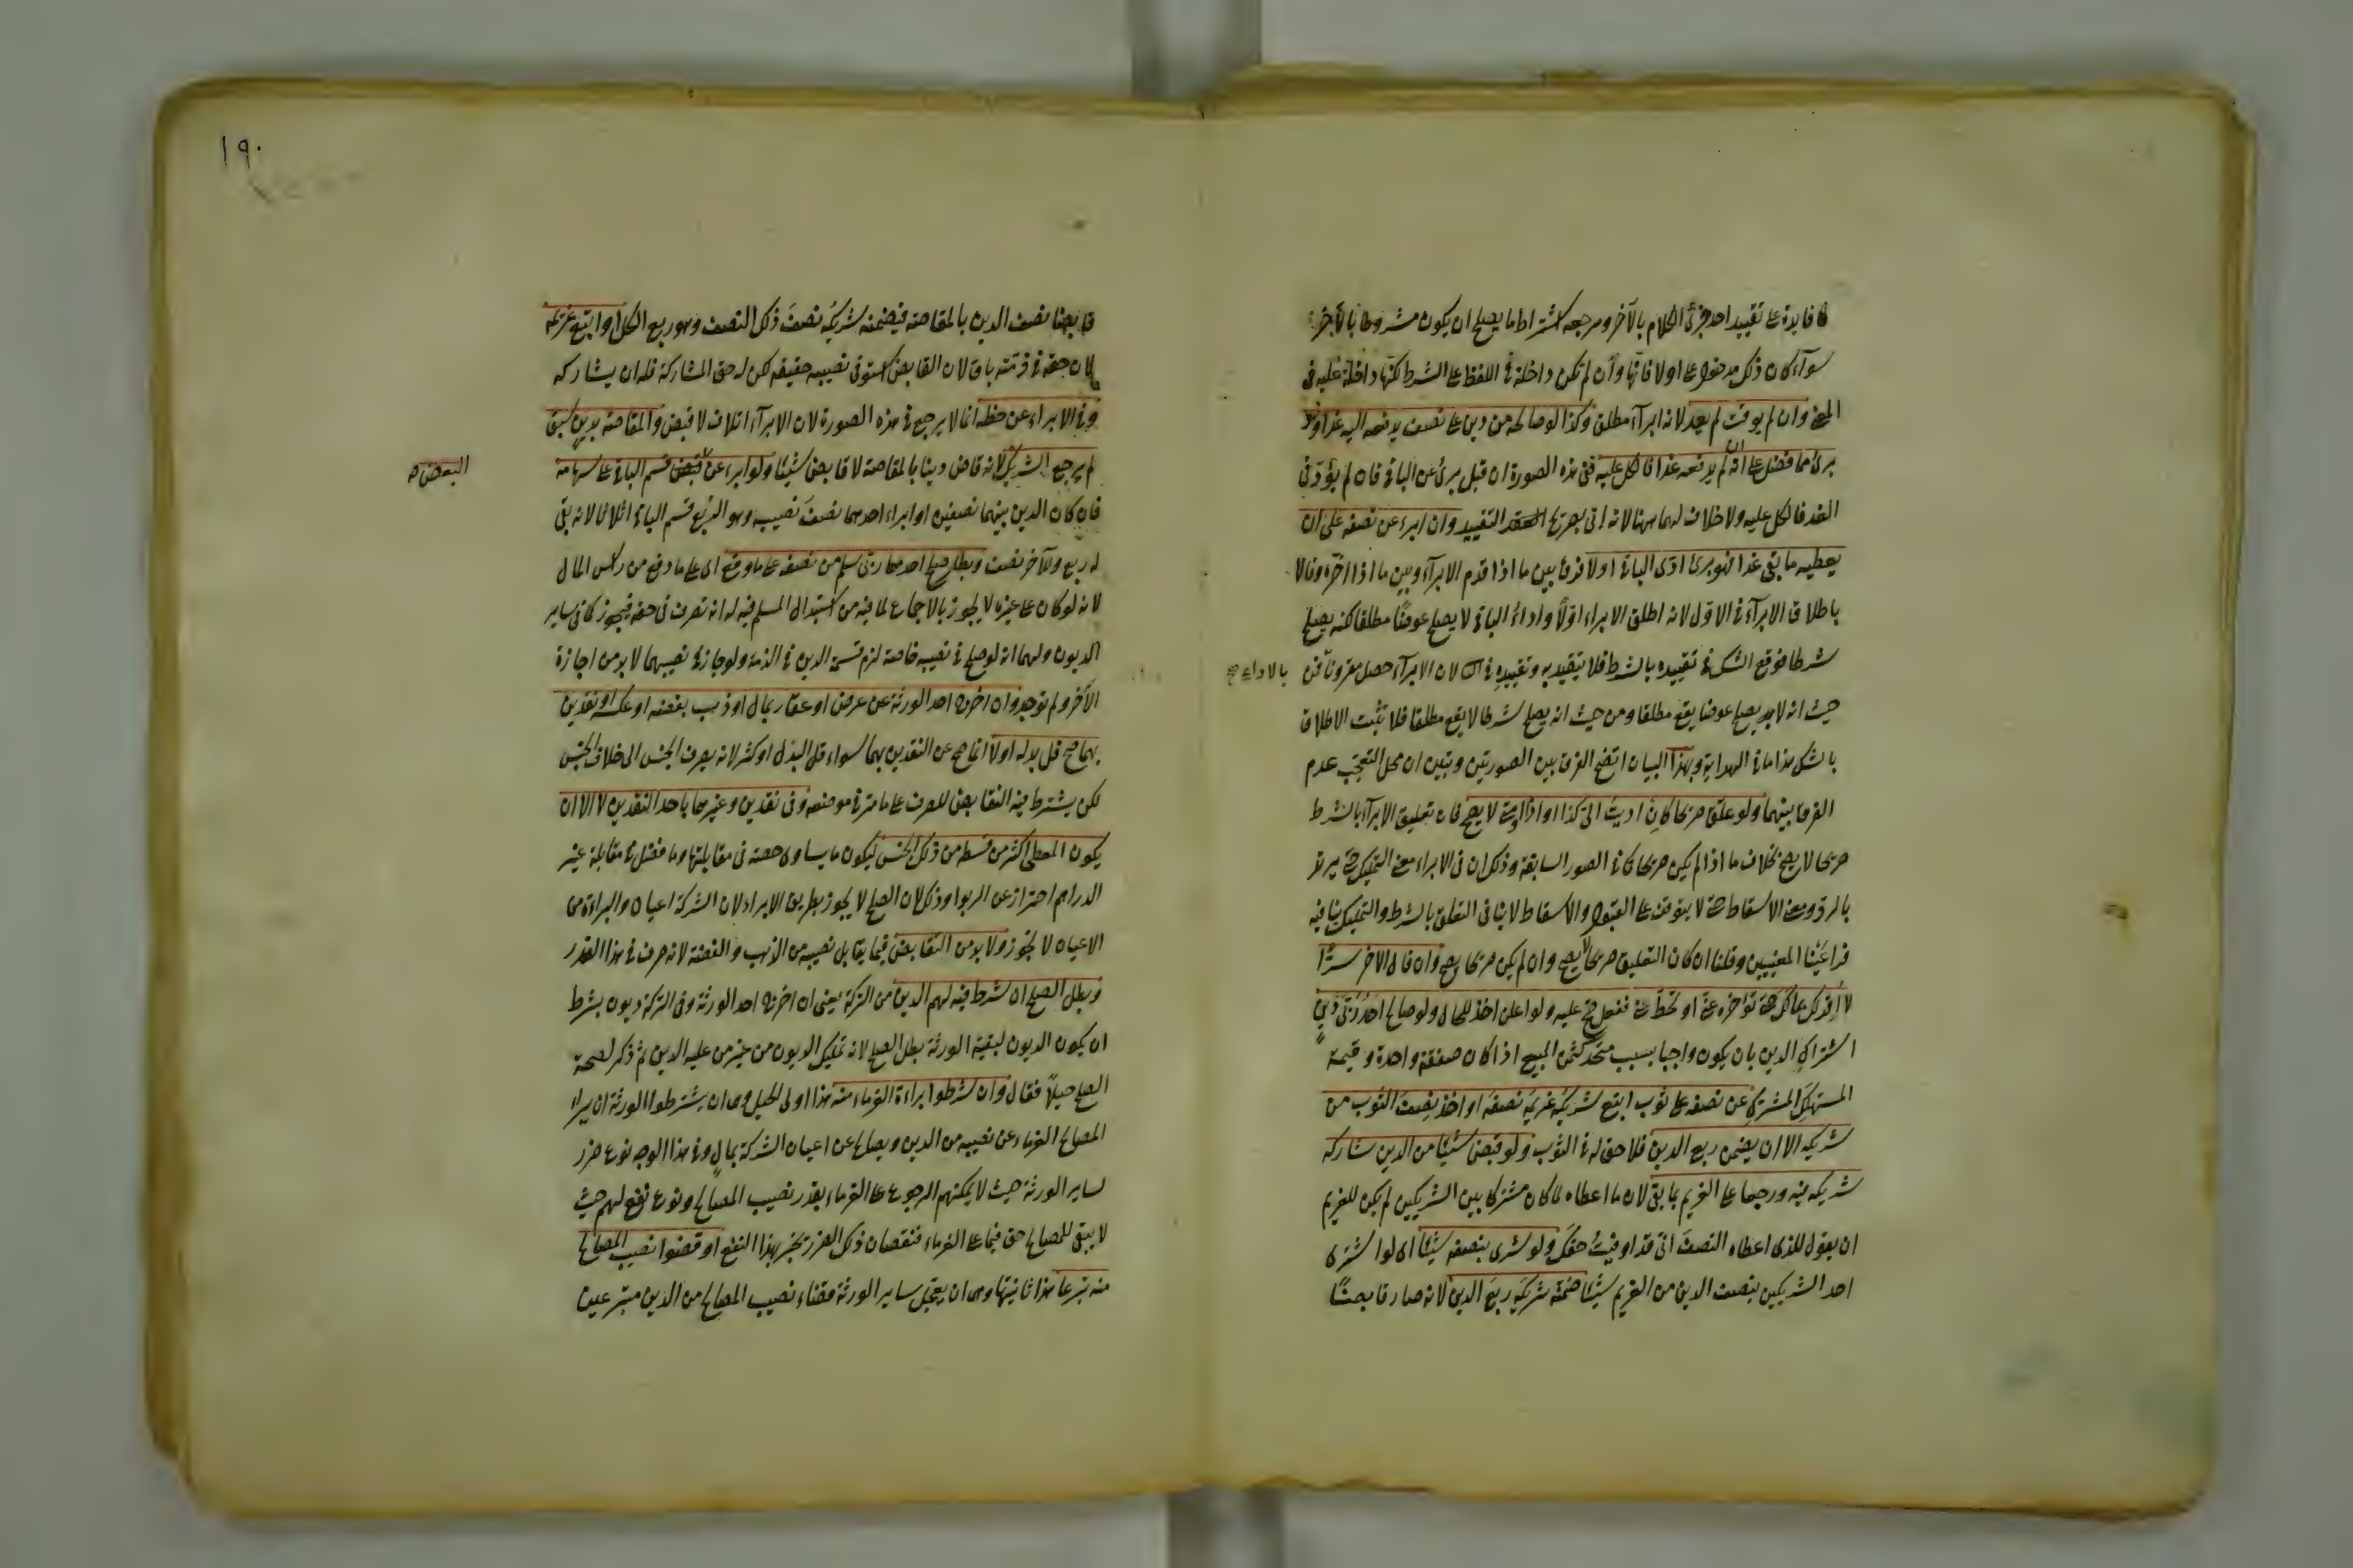 فايدة على تقييد احد جزئى الكلام بالآخر ومرجعه اشتراط ما يصلح ان يكون مشروطا بالآخر
سوآء كان ذلك مدخول على اولا فانها وان لم تكن داخلة فى اللفظ على الشرط لكنها داخلة عليه فى
المعنى وان لم يوقت لم يعد لانه ابرآء مطلق وكذا لو صالحه من دين على نصف يدفعه اليه غدا وهو
برئ مما فضل على انه ان لم يدفعه غدا فالكل عليه ففى هذه الصورة ان قبل برئ عن الباقى فان لم يؤد فى
الغد فالكل عليه ولا خلاف لهما ههنا لانه اتى بصريح التقييد وان ابرء عن نصفه على ان
يعطيه ما بقى غدا فهو برئ ادى الباقى اولا فرق بين ما اذا قدم الابرآء وبين ما اذا اخره وقالا
باطلاق الابرآء فى الاول لانه اطلق الابراء اولا واداء الباقى لا يصلح عوضا مطلقا لكنه يصلح
شرطا فوقع الشك فى تقييده بالشرط فلا يتقيد به وتقييده فى لان الابرآء حصل مقرونا فمن
بالاداء صح
حيث انه لا يصلح عوضا يقع مطلقا ومن حيث انه يصلح شرطا لا يقع مطلقا فلا تثبت الاطلاق
بالشك هذا ما فى الهداية وبهذا البيان اتضح الفرق بين الصورتين وتبين ان محل التعجب عدم
الفرق بينهما ولو علق صريحا كان اديت الى كذا او اذا او متى لا يصح فان تعليق الابرآء بالشرط
صريحا لا يصح بخلاف ما اذا لم يكن صريحا كما فى الصور السابقة وذلك ان فى الابراء معنى التمليك حتى يرتد
بالرد ومعنى الاسقاط حتى لا يتوقف على القبول والاسقاط لا ينافى التعلق بالشرط والتمليك ينافيه
فراعينا المعنيين وقلنا ان كان التعليق صريحا لا يصح وان لم يكن صريحا يصح وان قال الآخر سرا
لا اقر لك بمالك حتى تؤخره عنى او تحط عنى ففعل صح عليه ولو اعلن اخذ للحال ولو صالح احد ربى دين
اشتراك الدين بان يكون واجبا بسبب متحد كثمن المبيع اذا كان صفقة واحدة وقيمة
المستهلك المشترك عن نصفه على ثوب اتبع شريكه غريمه نصفه او اخذ نصف الثوب من
شريكه الا ان يضمن ربع الدين فلا حق له فى الثوب ولو قبض شيئا من الدين شاركه
شريكه فيه ورجعا على الغريم بما بقى لان ما اعطاه لما كان مشتركا بين الشريكين لم يكن للغريم
ان يقول للذى اعطاه النصف انى قد اوفيت حقك ولو شرى بنصفه شيئا اى لو اشترى
احد الشريكين بنصف الدين من الغريم شيئا ضمنه شريكه ربع الدين لانه صار قابضا
١٩٠
قابضا نصف الدين بالمقاصة فيضمنه شريكه نصف ذلك النصف وهو ربع الكل او اتبع غريمه
لان حقه فى ذمته باق لان القابض استوفى نصيبه حقيقة لكن له حق المشاركة فله ان يشاركه
وفى الابراء عن حظه انما لا يرجع فى هذه الصورة لان الابرآء اتلاف لا قبض والمقاصة بدين سبق
لم يرجع الشريك لانه قاض دينا بالمقاصة لا قابض شيئا ولو ابرء عن قسم الباقى على سهامه
البعض صح
فان كان الدين بينهما نصفين او ابراء احدهما نصف نصيبه وهو الربع قسم الباقى اثلاثا لانه بقى
له ربع وللآخر نصف وبطل صلح احد ربى سلم من نصفه على ما دفع اى على ما دفع من رأس المال
لانه لو كان على غيره لا يجوز بالاجماع لما فيه من استبدال المسلم فيه له انه تصرف فى حقه فيجوز كما فى ساير
الديون ولهما انه لو صح فى نصيبه خاصة لزم قسمة الدين فى الذمة ولو جاز فى نصيبهما لا بد من اجازة
الآخر ولم توجد وان اخرج احد الورثة عن عرض او عقار بمال او ذهب بفضه او عكسه او نقدين
بهما صح قل بدله اولا انما صح عن النقدين بهما سواء قل البدل او كثر لانه يصرف الجنس الى خلاف الجنس
لكن يشترط فيه التقابض للصرف على ما مر فى موضعه وفى نقدين وغيرهما باحد النقدين لا الا ان
يكون المعطى اكثر من قسطه من ذلك الجنس ليكون ما يساوى حصته فى مقابلتها وما فضل فى مقابلة غير
الدراهم احترازا عن الربوا وذلك لان الصلح لا يجوز بطريق الابراء لان الشركة اعيان والبراءة من
الاعيان لا تجوز ولا بد من التقابض فيما يقابل نصيبه من الذهب والفضة لانه صرف فى هذا القدر
وبطل الصلح ان شرط فيه لهم الدين من التركة يعنى ان اخرج احد الورثة وفى التركة ديون بشرط
ان يكون الديون لبقية الورثة بطل الصلح لانه تمليك الديون من غير من عليه الدين ثم ذكر لصحة
الصلح حيلا فقال وان شرطوا براءة الغرماء منه هذا اولى الحيل وهى ان يشترطوا الورثة ان يبراء
المصالح الغرماء عن نصيبه من الدين ويصالح عن اعيان الشركة بمال وفى هذا الوجه نوع ضرر
لساير الورثة حيث لا يمكنهم الرجوع على الغرماء بقدر نصيب المصالح ونوع نفع لهم حيث
لا يبقى للمصالح حق فيما على الغرماء فنقصان ذلك الضرر يجبر بهذا النفع او قضوا نصيب المصالح
منه تبرعا هذا ثانيتها وهى ان يعجل ساير الورثة قضاء نصيب المصالح من الدين متبرعين